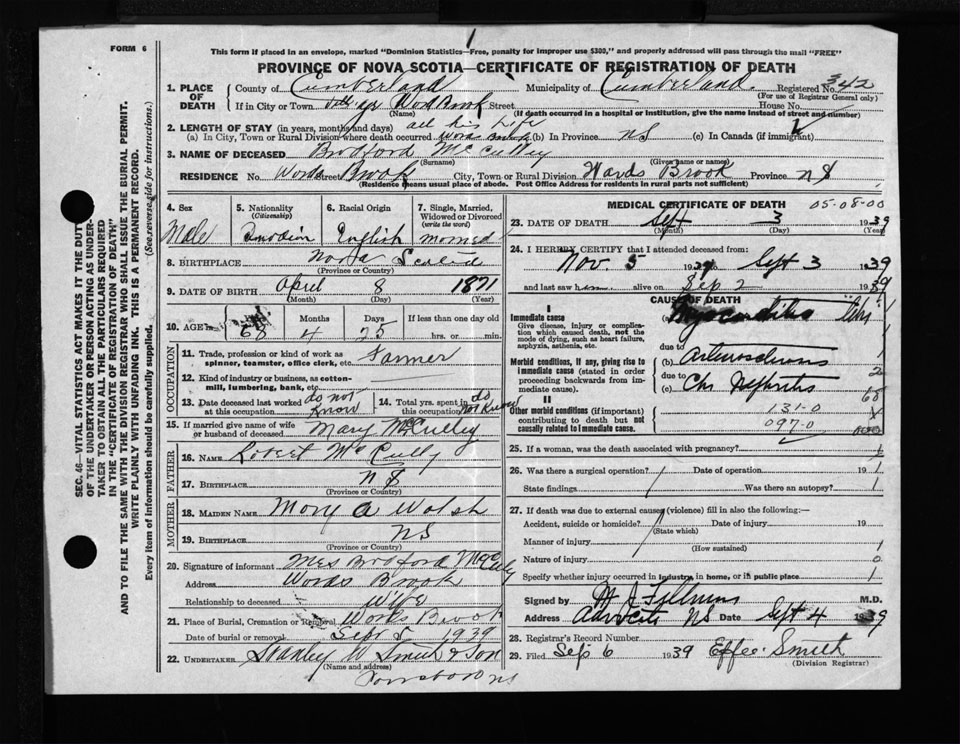 FORM 6
This form if placed in an envelope, marked "Dominion Statistics—Free, penalty for improper use $300," and properly addressed will pass through the mail "FREE"
PROVINCE OF NOVA SCOTIA—CERTIFICATE OF REGISTRATION OF DEATH
1. PLACE OF DEATH County of Cumberland Municipality of Cumberland Registered No. 342
(For use of Registrar General only)
If in City or Town Village Street House No.
(Name) (If death occurred in a hospital or institution, give the name instead of street and number)
2. LENGTH OF STAY (in years, months and days) all his life
(a) In City, Town or Rural Division where death occurred Words Brook (b) In Province NS (c) In Canada (if immigrant)
3. NAME OF DECEASED Bradford McCulley
(Surname) (Given name or names)
RESIDENCE No. Words Street Brook City, Town or Rural Division Wards Brook Province NS
(Residence means usual place of abode. Post Office Address for residents in rural parts not sufficient)
4. Sex Male
5. Nationality (Citizenship)
6. Racial Origin English
7. Single, Married, Widowed or Divorced (write the word) Married
8. BIRTHPLACE Nova Scotia
(Province or Country)
9. DATE OF BIRTH April 8 1871
(Month) (Day) (Year)
10. AGE Years 68 Months 4 Days 25 If less than one day old hrs. or min.
OCCUPATION
11. Trade, profession or kind of work as spinner, teamster, office clerk, etc. Farmer
12. Kind of industry or business, as cotton-mill, lumbering, bank, etc.
13. Date deceased last worked at this occupation do not know
14. Total yrs. spent in this occupation do not know
15. If married give name of wife or husband of deceased Mary McCulley
FATHER
16. Name Robert McCully
17. Birthplace NS
(Province or Country)
MOTHER
18. Maiden Name Mary A Walsh
19. Birthplace NS
(Province or Country)
20. Signature of informant Mrs Bradford McCulley
Address Words Brook
Relationship to deceased Wife
21. Place of Burial, Cremation or Removal Words Brook
Date of burial or removal Sept 5 1939
22. Undertaker Stanley W Smith & Son
(Name and address)
Parrsboro NS
MEDICAL CERTIFICATE OF DEATH
05-08-00
23. DATE OF DEATH Sept 3 1939
(Month) (Day) (Year)
24. I HEREBY CERTIFY that I attended deceased from:
Nov. 5 19 Sept 3 1939
and last saw him alive on Sep 2 1939
CAUSE OF DEATH
I
Immediate cause
Give disease, injury or complication which caused death, not the mode of dying, such as heart failure, asphyxia, asthenia, etc.
(a) Myocarditis
due to
Morbid conditions, if any, giving rise to immediate cause (stated in order proceeding backwards from immediate cause).
(b) Arteriosclerosis
due to
(c) Chr Nephritis
II
Other morbid conditions (if important) contributing to death but not causally related to immediate cause.
131-0
097.0
25. If a woman, was the death associated with pregnancy?
26. Was there a surgical operation? Date of operation 19
State findings Was there an autopsy?
27. If death was due to external causes (violence) fill in also the following:—
Accident, suicide or homicide? Date of injury 19
(State which)
Manner of injury
(How sustained)
Nature of injury
Specify whether injury occurred in industry, in home, or in public place
Signed by M.D.
Address Advocate NS Date Sept 4 1939
28. Registrar's Record Number
29. Filed Sep 6 1939 Effie Smith
(Division Registrar)
SEC. 46—VITAL STATISTICS ACT MAKES IT THE DUTY
OF THE UNDERTAKER OR PERSON ACTING AS UNDER-
TAKER TO OBTAIN ALL THE PARTICULARS REQUIRED
IN THE "CERTIFICATE OF REGISTRATION OF DEATH"
AND TO FILE THE SAME WITH THE DIVISION REGISTRAR WHO SHALL ISSUE THE BURIAL PERMIT.
WRITE PLAINLY WITH UNFADING INK. THIS IS A PERMANENT RECORD.
Every item of information should be carefully supplied. (See reverse side for instructions.)